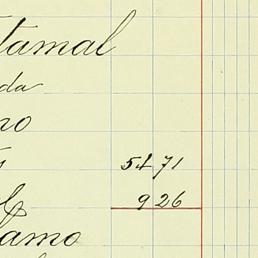 tamal
da
no
s 5471
926
amo